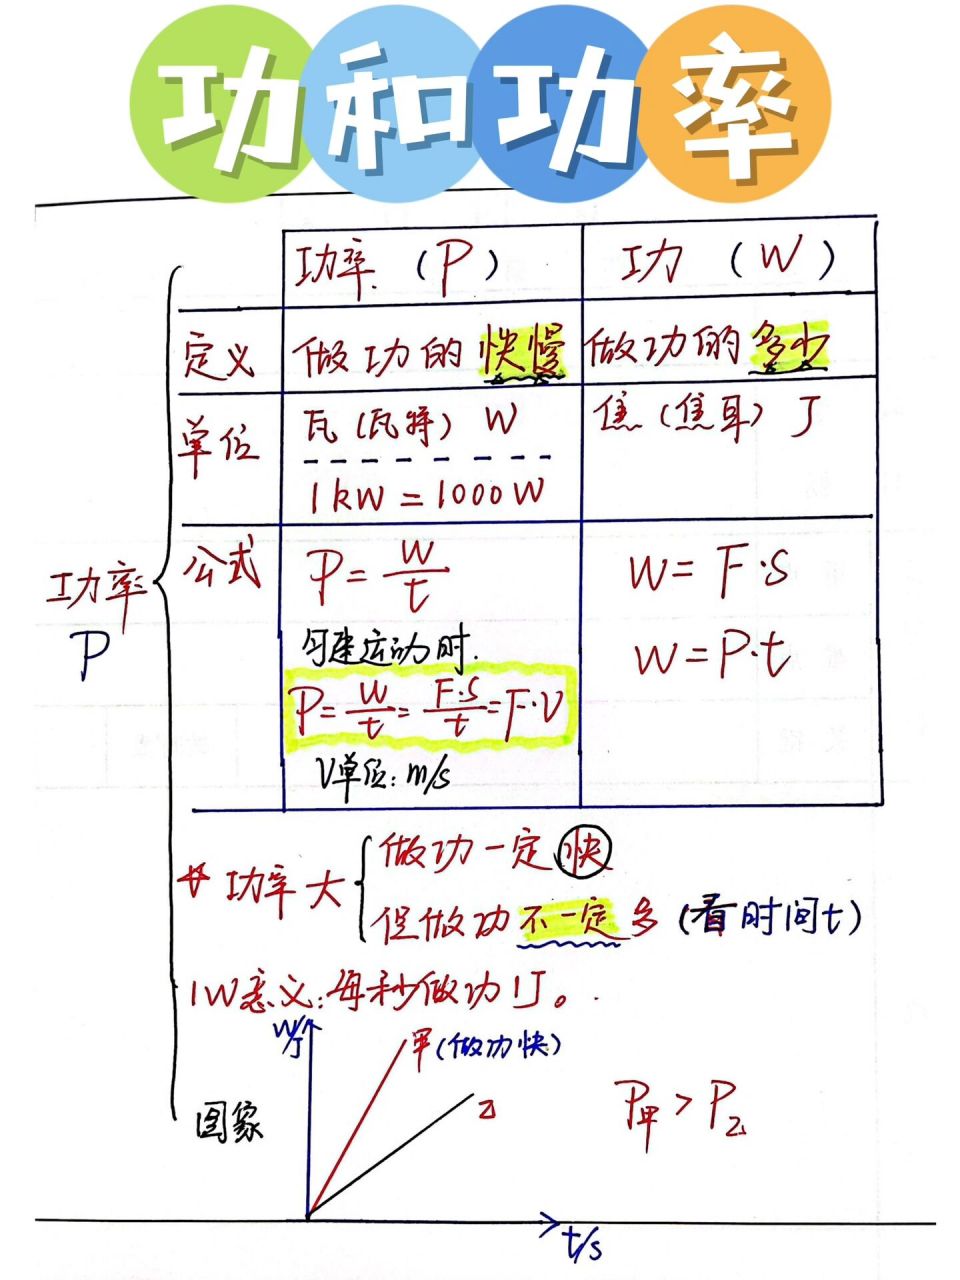 功和功率
功率(P) 功(W)
定义 做功的快慢 做功的多少
单位 瓦(瓦特) W 焦(焦耳) J
1kW=1000W
公式 P=W/t W=F·S
W=P·t
匀速运动时.
P=W/t=F·S/t=F·V
V单位:m/s
功率
P
功率大 做功一定快
但做功不一定多(看时间t)
1W意义:每秒做功1J。
W/J 甲(做功快)
乙
图象 P甲>P乙
t/s